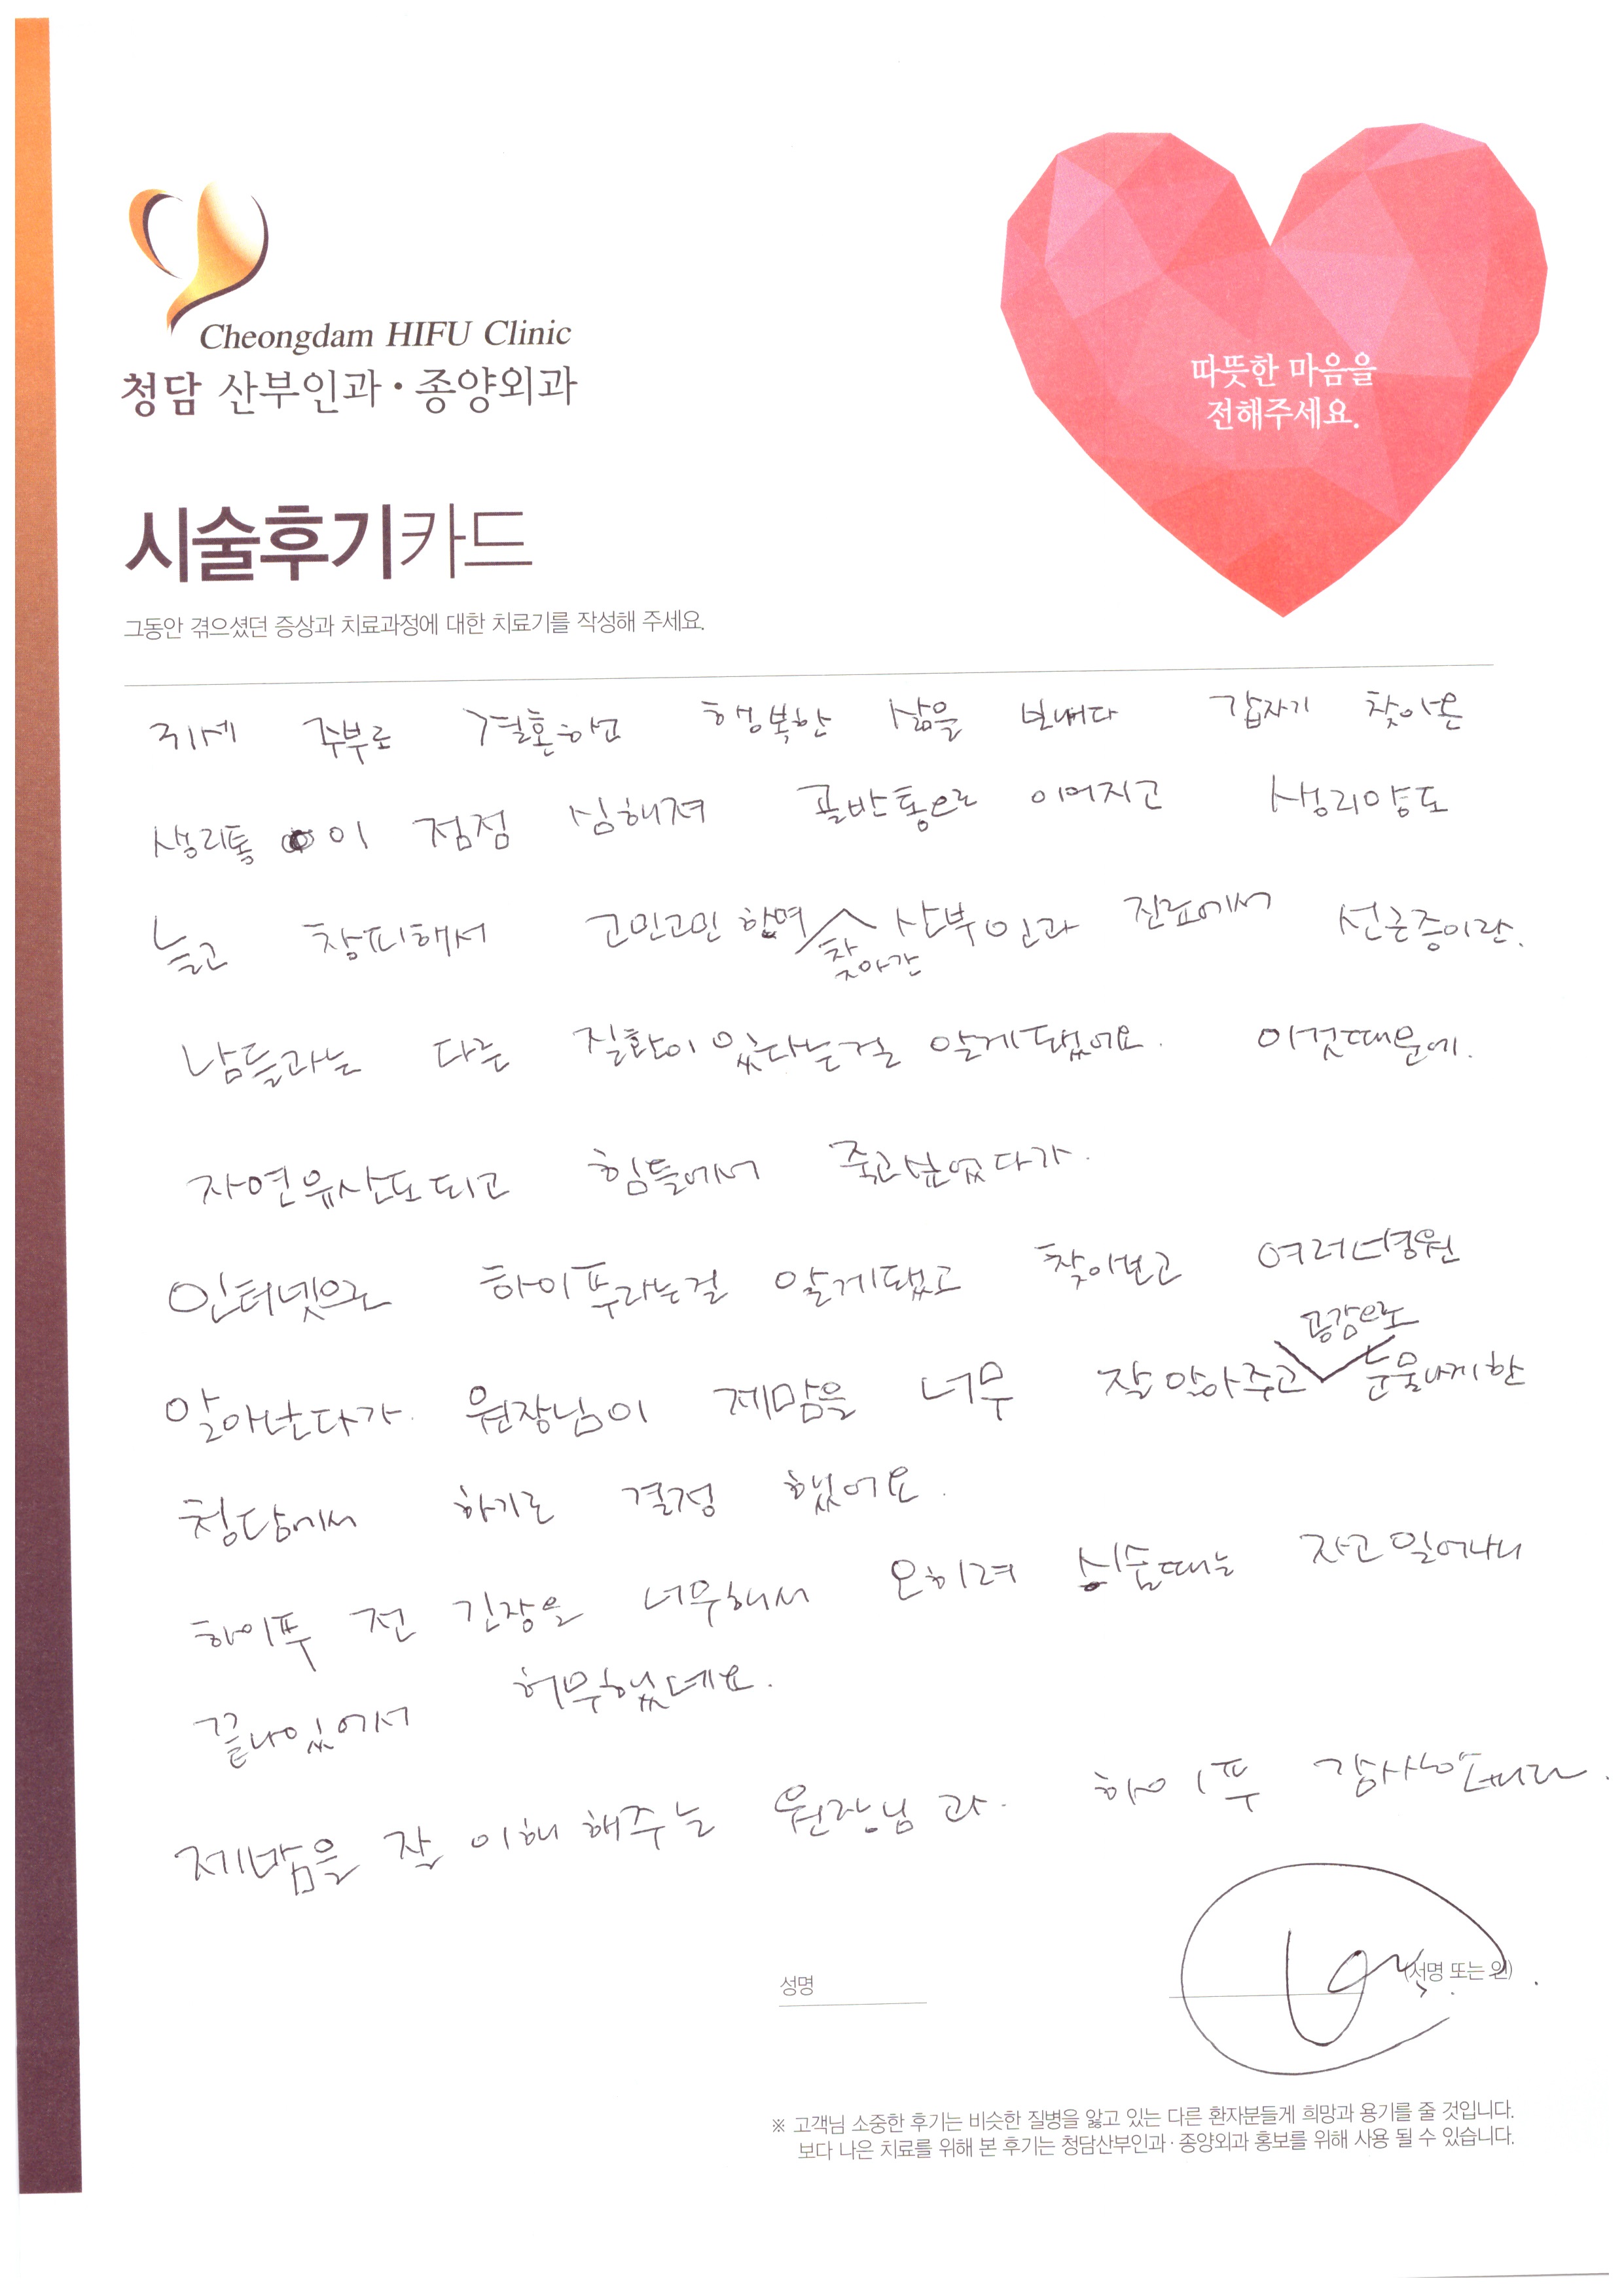 Cheongdam HIFU Clinic
청담 산부인과·종양외과
따뜻한 마음을
전해주세요.
시술후기카드
그동안 겪으셨던 증상과 치료과정에 대한 치료기를 작성해 주세요.
주부로 결혼하고 행복한 삶을 보내다 갑자기 찾아온
생리통 이 점점 심해져 골반통으로 이어지고 생리양도
늘고 창피해서 고민고민 하며 찾아간 산부인과 진료에서 선근증이란.
남들과는 다른 질환이 있다는걸 알게됐어요. 이것때문에.
자연유산도 되고 힘들에서 죽고싶었다가.
인터넷으로 하이푸라는걸 알게됐고 찾아보고 여러병원
알아본다가. 원장님이 제맘을 너무 잘 알아주고 공감으로 눈물나게한
청담에서 하기로 결정 했어요.
하이푸 전 긴장을 너무해서 오히려 시술때는 자고 일어나니
끝나있어서 허무했데요.
제맘을 잘 이해 해주는 원장님 과. 하이푸 감사합니다.
성명
(서명 또는 인)
※ 고객님 소중한 후기는 비슷한 질병을 앓고 있는 다른 환자분들게 희망과 용기를 줄 것입니다.
보다 나은 치료를 위해 본 후기는 청담산부인과·종양외과 홍보를 위해 사용 될 수 있습니다.